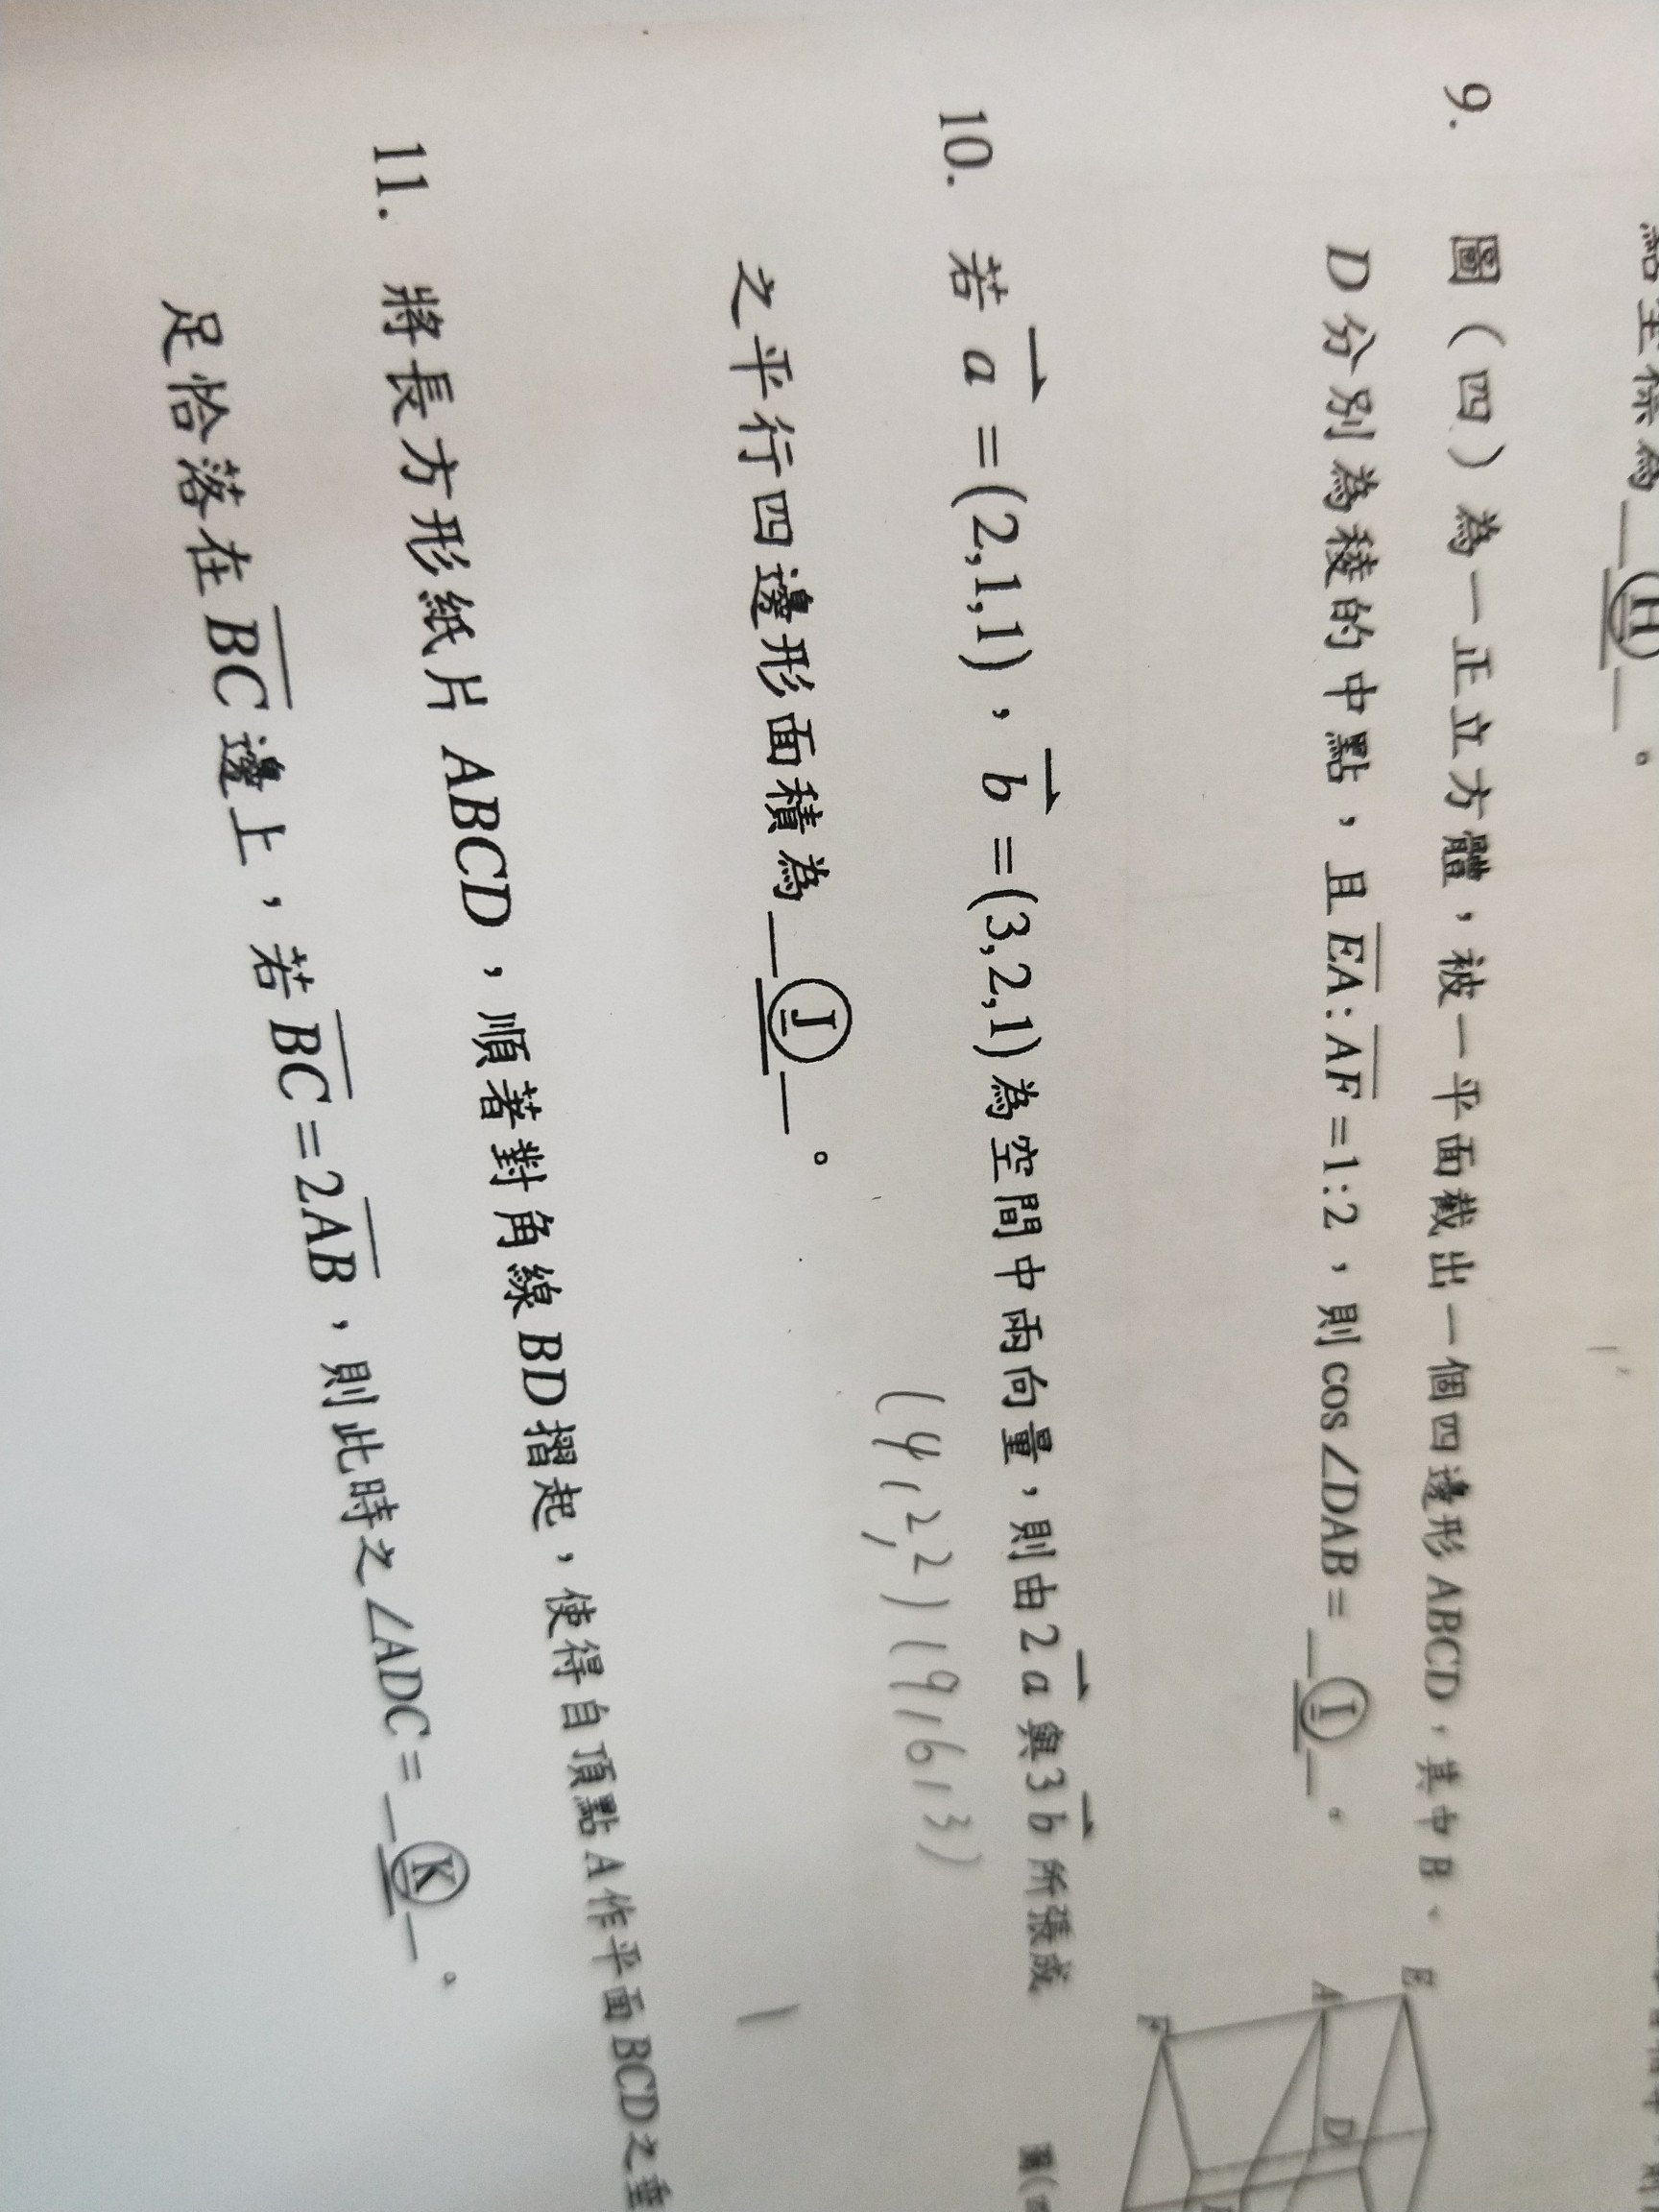 點坐標為 (H) 。
9. 圖（四）為一正立方體，被一平面截出一個四邊形 ABCD，其中 B、
D 分別為稜的中點，且 EA : AF = 1 : 2，則 cos∠DAB = (I) 。
10. 若 a = (2,1,1)，b = (3,2,1) 為空間中兩向量，則由 2a 與 3b 所張成
(4,2,2) (9,6,3)
之平行四邊形面積為 (J) 。
11. 將長方形紙片 ABCD，順著對角線 BD 摺起，使得自頂點 A 作平面 BCD 之垂
足恰落在 BC 邊上，若 BC = 2AB，則此時之 ∠ADC = (K) 。
E
A
F
D
圖(